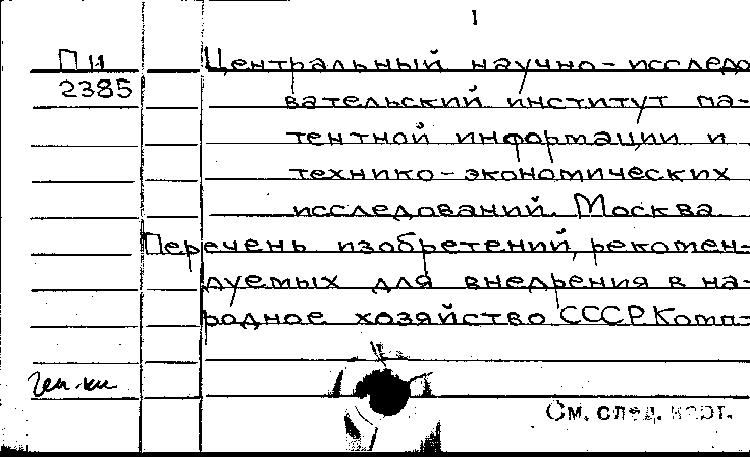 1
ПИ Центральный научно-исследо
2385 вательский институт па-
тентной информации и
технико-экономических
исследований. Москва
Перечень изобретений, рекомен-
дуемых для внедрения в на-
родное хозяйство СССР. Комп-
См. след. карт.